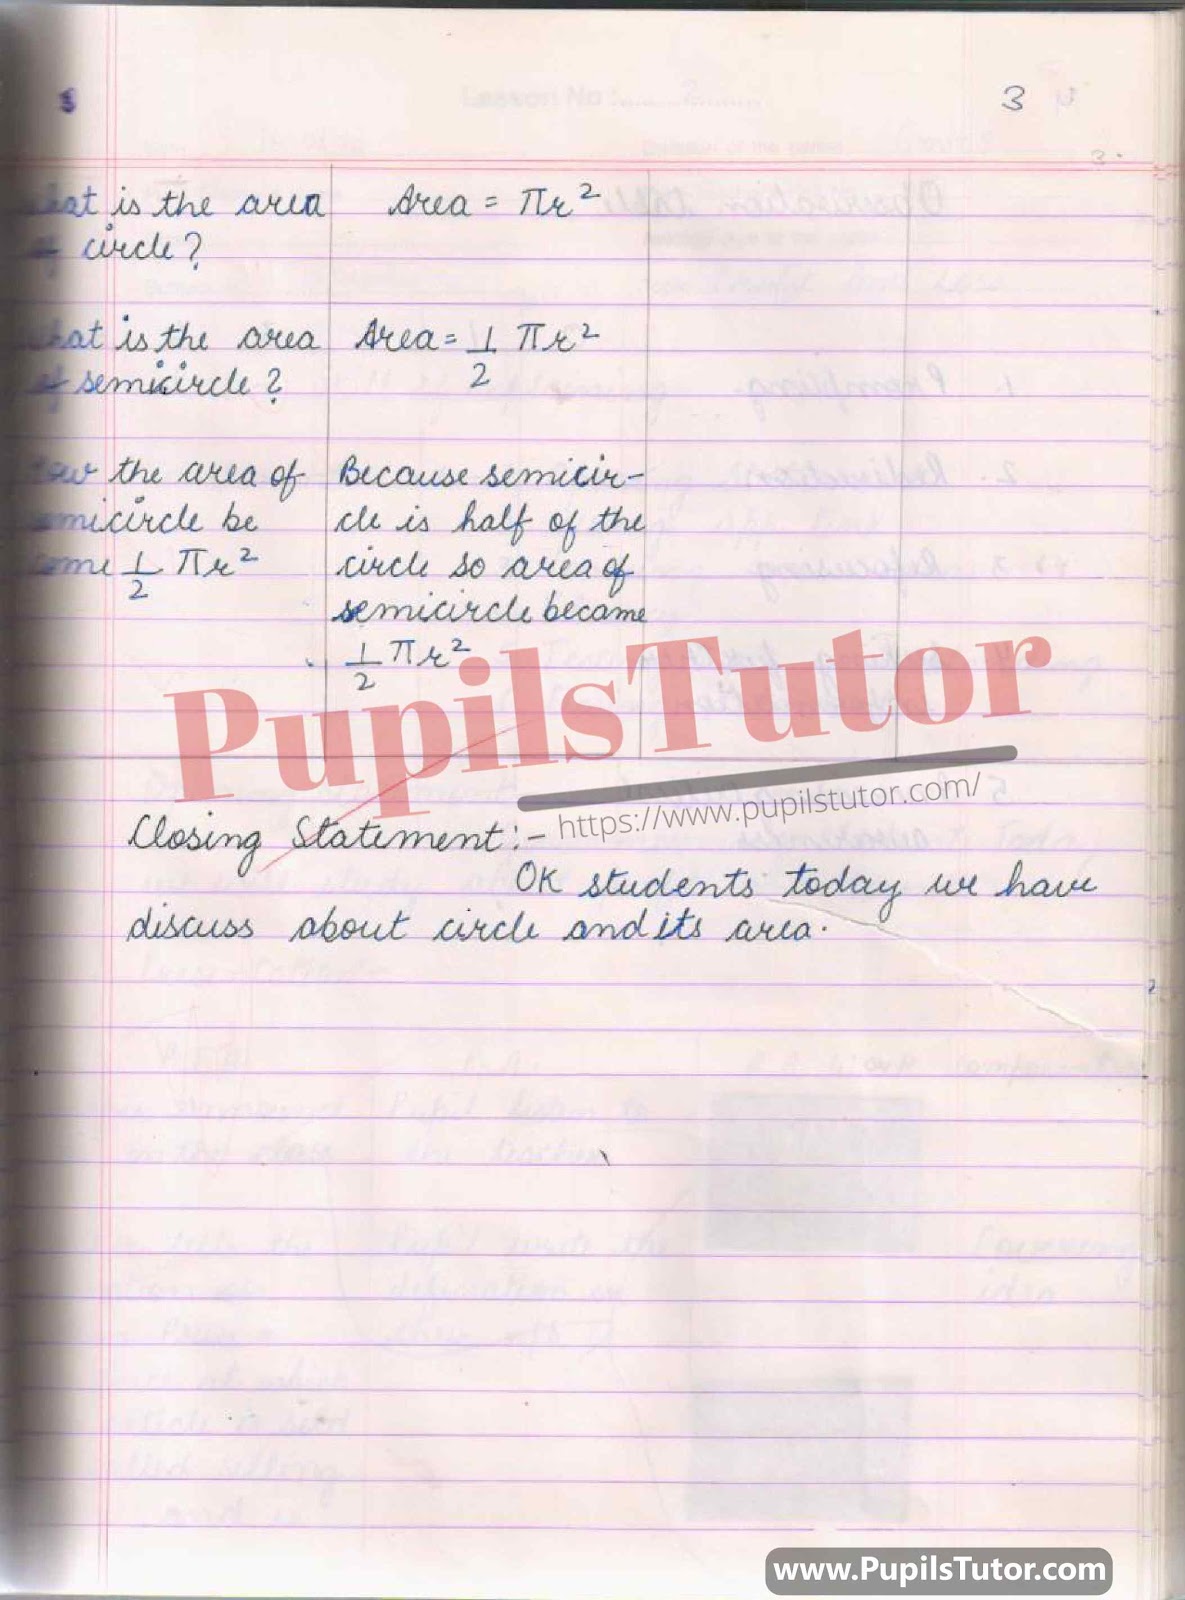 3
hat is the area
of circle?
Area = πr²
hat is the area
of semicircle?
Area = 1/2 πr²
ow the area of
micircle be
ome 1/2 πr²
Because semicir-
cle is half of the
circle so area of
semicircle became
1/2 πr²
PupilsTutor
https://www.pupilstutor.com/
Closing Statement:-
OK students today we have
discuss about circle and its area.
www.PupilsTutor.com